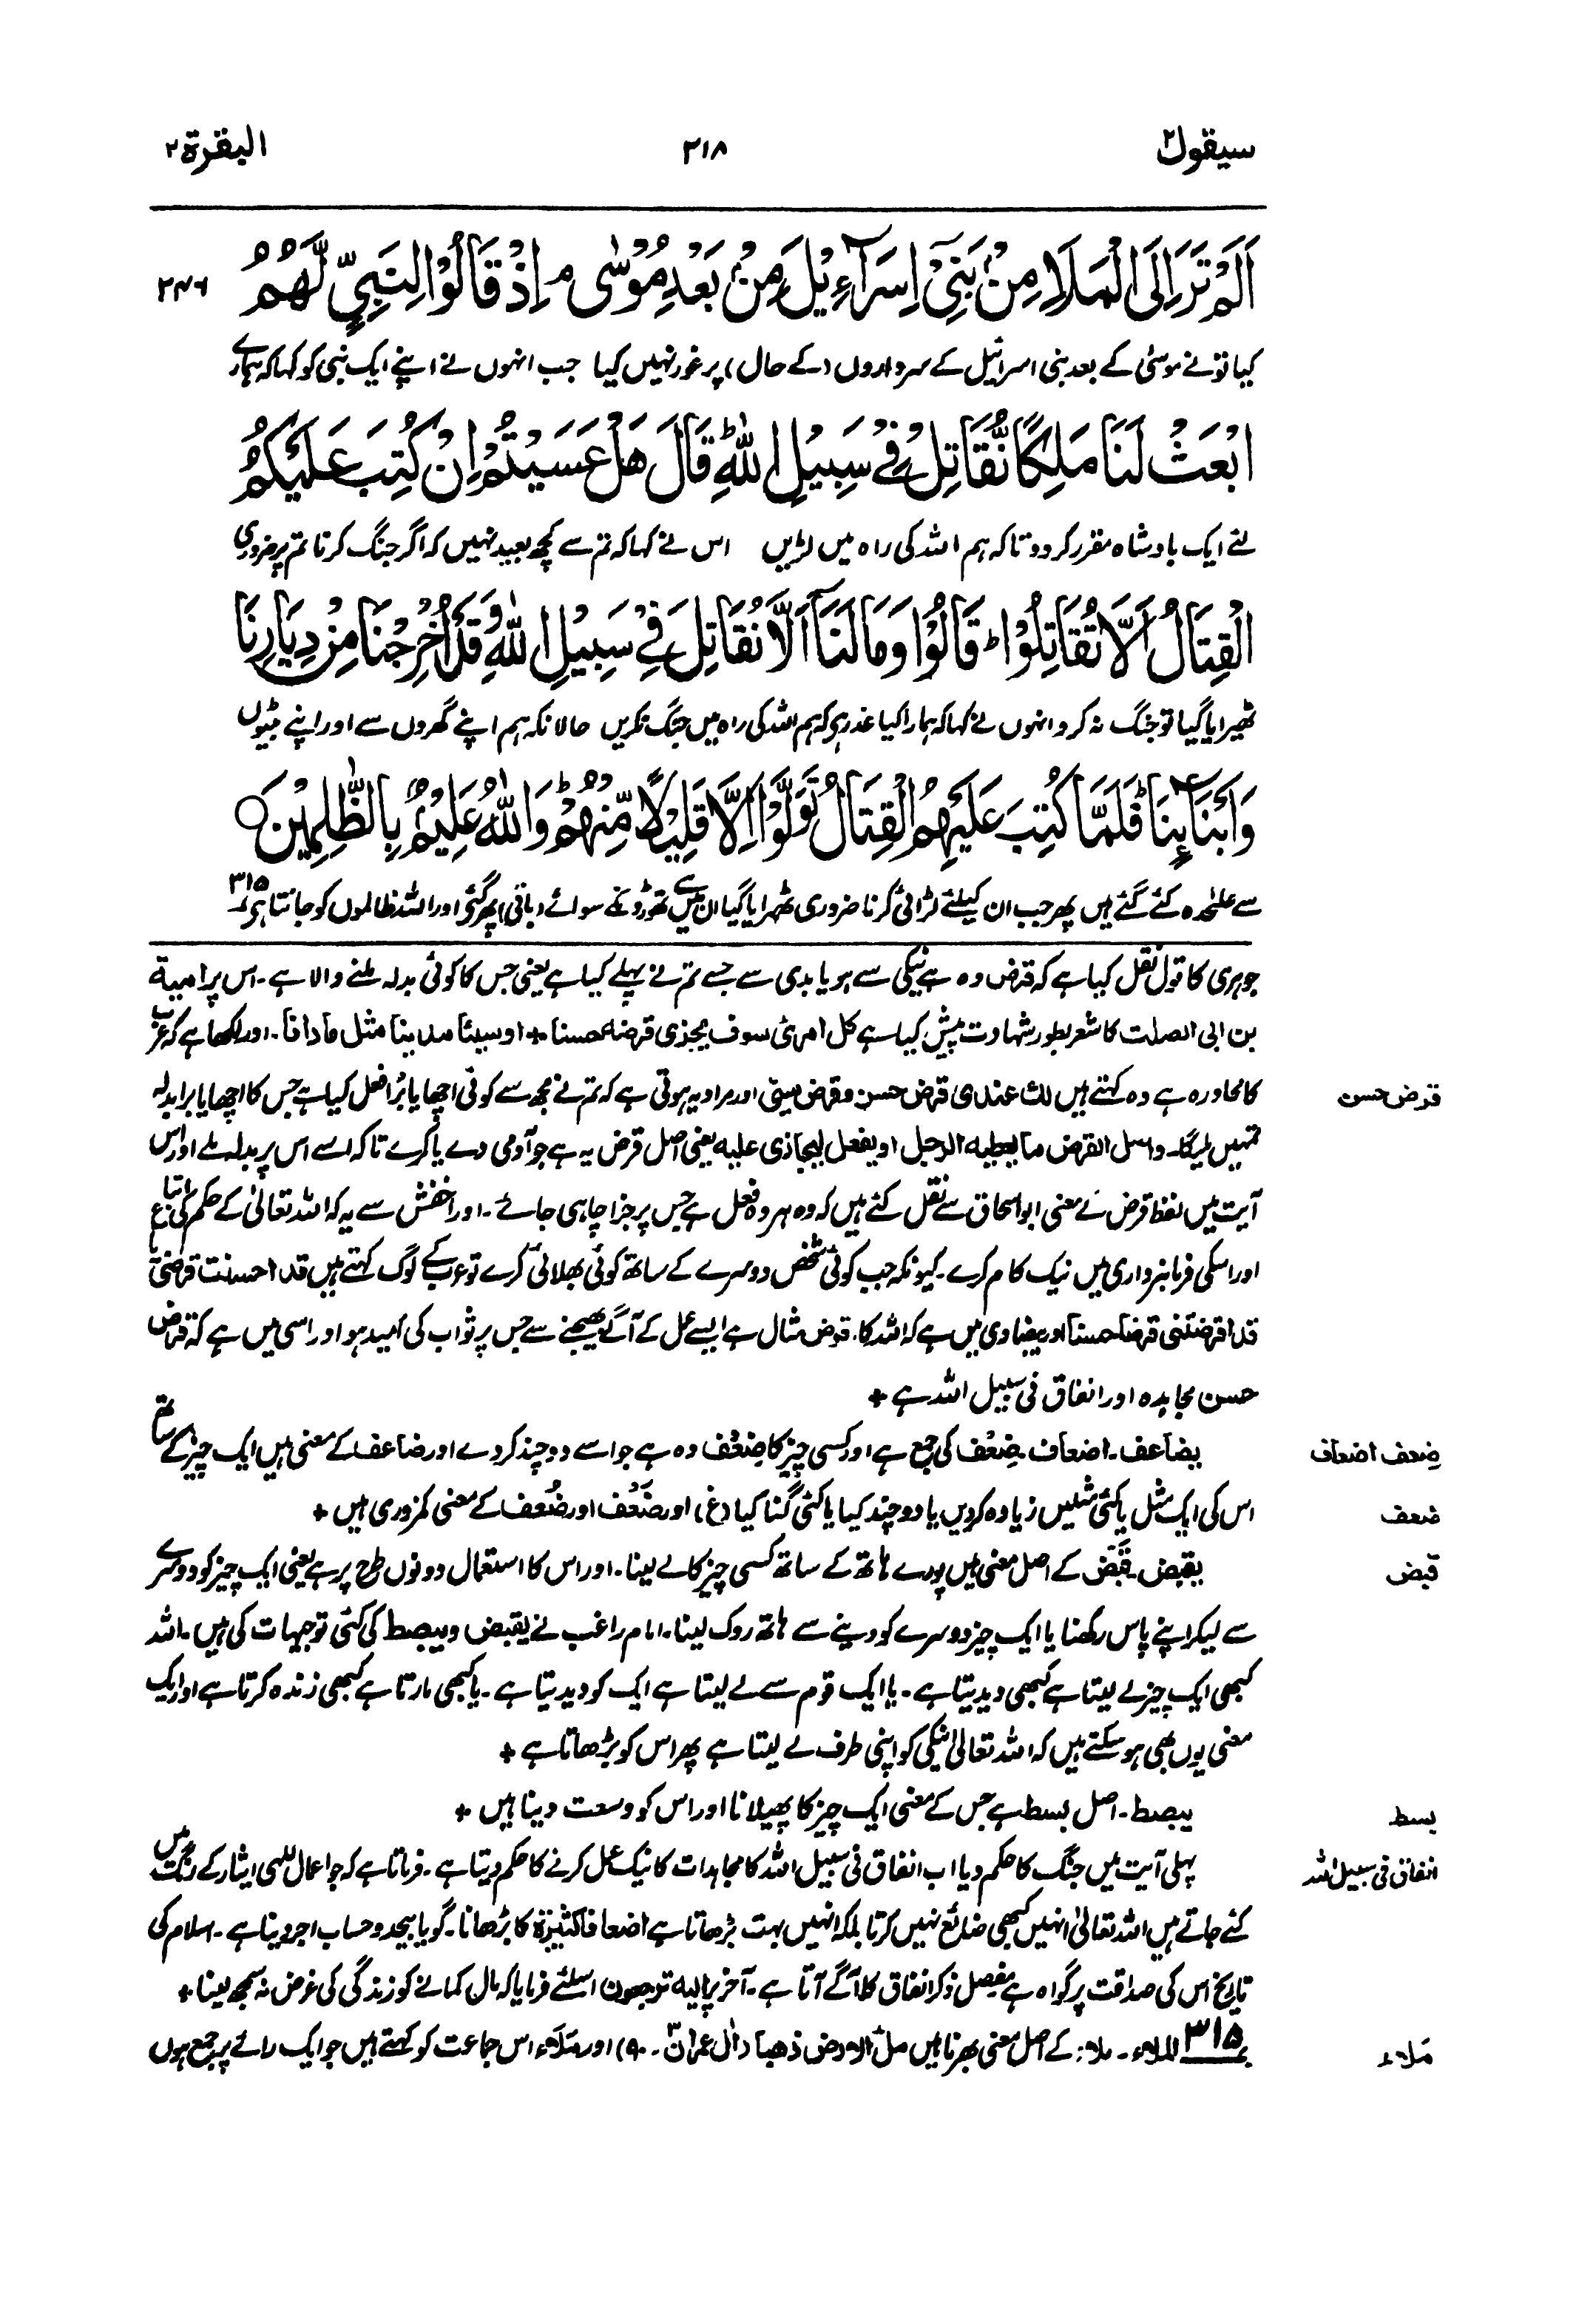 سیقول ۲
۳۱۸
البقرة ۲
اَلَمْ تَرَ اِلَى الْمَلَاِ مِنْۢ بَنِیْۤ اِسْرَآءِیْلَ مِنْۢ بَعْدِ مُوْسٰى ۘ اِذْ قَالُوْا لِنَبِیٍّ لَّهُمُ
۲۴۶
کیا تو نے موسٰی کے بعد بنی اسرائیل کے سرداروں (کے حال) پر غور نہیں کیا جب انہوں نے اپنے ایک نبی کو کہا کہ ہمارے
ابْعَثْ لَنَا مَلِكًا نُّقَاتِلْ فِیْ سَبِیْلِ اللّٰهِ ؕ قَالَ هَلْ عَسَیْتُمْ اِنْ كُتِبَ عَلَیْكُمُ
لئے ایک بادشاہ مقرر کر دو تا کہ ہم اللہ کی راہ میں لڑیں اس نے کہا کہ تم سے کچھ بعید نہیں کہ اگر جنگ کرنا تم پر ضروری
الْقِتَالُ اَلَّا تُقَاتِلُوْا ؕ قَالُوْا وَمَا لَنَاۤ اَلَّا نُقَاتِلَ فِیْ سَبِیْلِ اللّٰهِ وَقَدْ اُخْرِجْنَا مِنْ دِیَارِنَا
ٹھیرایا گیا تو جنگ نہ کرو انہوں نے کہا کہ ہمارا کیا عذر ہی کہ ہم اللہ کی راہ میں جنگ نکریں حالانکہ ہم اپنے گھروں سے اور اپنے بیٹوں
وَاَبْنَآىِٕنَا ؕ فَلَمَّا كُتِبَ عَلَیْهِمُ الْقِتَالُ تَوَلَّوْا اِلَّا قَلِیْلًا مِّنْهُمْ ؕ وَاللّٰهُ عَلِیْمٌۢ بِالظّٰلِمِیْنَ ○
سے علیحدہ کئے گئے ہیں پھر جب ان کیلئے لڑائی کرنا ضروری ٹھہرایا گیا ان میں سے تھوڑوں کے سوائے (باقی) پھر گئی اور اللہ ظالموں کو جانتا ہی ۳۱۵
جوہری کا قول نقل کیا ہے کہ قرض وہ ہے نیکی سے ہو یا بدی سے جسے تم نے پہلے کیا ہے یعنی جس کا کوئی بدلہ ملنے والا ہے۔ اس پر امیة
بن ابی الصلت کا شعر بطور شہادت پیش کیا ہے کل امرئ سوف یجزی قرضہ حسنا + او سیئا مدینا مثل مادانا۔ اور لکھا ہے کہ عرب
کا محاورہ ہے وہ کہتے ہیں لك عندی قرض حسن وقرض سیئ اور مراد یہ ہوتی ہے کہ تم نے مجھ سے کوئی اچھا یا بُرا فعل کیا ہے جس کا اچھا یا برا بدلہ
قرض حسن
تمہیں ملیگا۔ واصل القرض ما یعطیہ الرجل او یفعل لیجازی علیہ یعنی اصل قرض یہ ہے جو آدمی دے یا کرے تا کہ اسے اس پر بدلہ ملے اور اس
آیت میں لفظ قرض کے معنی ابو اسحاق سے نقل کئے ہیں کہ وہ ہر وہ فعل ہے جس پر جزا چاہی جائے۔ اور اخفش سے یہ کہ اللہ تعالیٰ کے حکم کی اتباع
اور اسکی فرمانبرداری میں نیک کام کرے۔ کیونکہ جب کوئی شخص دوسرے کے ساتھ کوئی بھلائی کرے تو عرب کے لوگ کہتے ہیں قد احسنت قرضی
قد اقرضتنی قرضا حسنا اور بیضاوی میں ہے کہ اللہ کا قرض مثال ہے ایسے عمل کے آگے بھیجنے سے جس پر ثواب کی اُمید ہو اور اسی میں ہے کہ قرض
حسن مجاہدہ اور انفاق فی سبیل اللہ ہے +
یضاعف۔ اضعاف۔ ضِعْف کی جمع ہے اور کسی چیز کا ضِعْف وہ ہے جو اسے دوچند کر دے اور ضاعف کے معنی ہیں ایک چیز کے ساتھ
ضِعف اضعاف
اس کی ایک مثل یا کئی مثلیں زیادہ کردیں یا دوچند کیا یا کئی گنا کیا (غ) اور ضَعْف اور ضُعف کے معنی کمزوری ہیں +
ضعف
یقبض۔ قَبْض کے اصل معنی ہیں پورے ہاتھ کے ساتھ کسی چیز کا لے لینا۔ اور اس کا استعمال دونوں طرح پر ہے یعنی ایک چیز کو دوسرے
قبض
سے لیکر اپنے پاس رکھنا یا ایک چیز دوسرے کو دینے سے ہاتھ روک لینا۔ امام راغب نے یقبض ویبصط کی کئی توجیہات کی ہیں۔ اللہ
کبھی ایک چیز لے لیتا ہے کبھی دیدیتا ہے۔ یا ایک قوم سے لے لیتا ہے ایک کو دیدیتا ہے۔ یا کبھی مارتا ہے کبھی زندہ کرتا ہے اور ایک
معنی یوں بھی ہو سکتے ہیں کہ اللہ تعالیٰ نیکی کو اپنی طرف لے لیتا ہے پھر اس کو بڑھاتا ہے +
یبصط۔ اصل بسط ہے جس کے معنی ایک چیز کا پھیلانا اور اس کو وسعت دینا ہیں +
بسط
پہلی آیت میں جنگ کا حکم دیا اب انفاق فی سبیل اللہ کا مجاہدات کا نیک عمل کرنے کا حکم دیتا ہے۔ فرماتا ہے کہ جو اعمال للہی ایثار کے رنگ میں
انفاق فی سبیل اللہ
کئے جاتے ہیں اللہ تعالیٰ انہیں کبھی ضائع نہیں کرتا بلکہ انہیں بہت بڑھاتا ہے اضعافا کثیرة کا بڑھانا۔ گویا بیحد و حساب اجر دینا ہے۔ اسلام کی
تاریخ اس کی صداقت پر گواہ ہے مفصل ذکر انفاق کا آگے آتا ہے۔ آخر پر الیہ ترجعون اسلئے فرمایا کہ مال کمانے کو زندگی کی غرض نہ سمجھ لینا +
۳۱۵ الملاء۔ ملاء: کے اصل معنی بھرنا ہیں ملء الارض ذھبا (اٰل عمران ۳۔ ۹۰) اور مَلَاء اس جماعت کو کہتے ہیں جو ایک رائے پر جمع ہوں
مَلاء